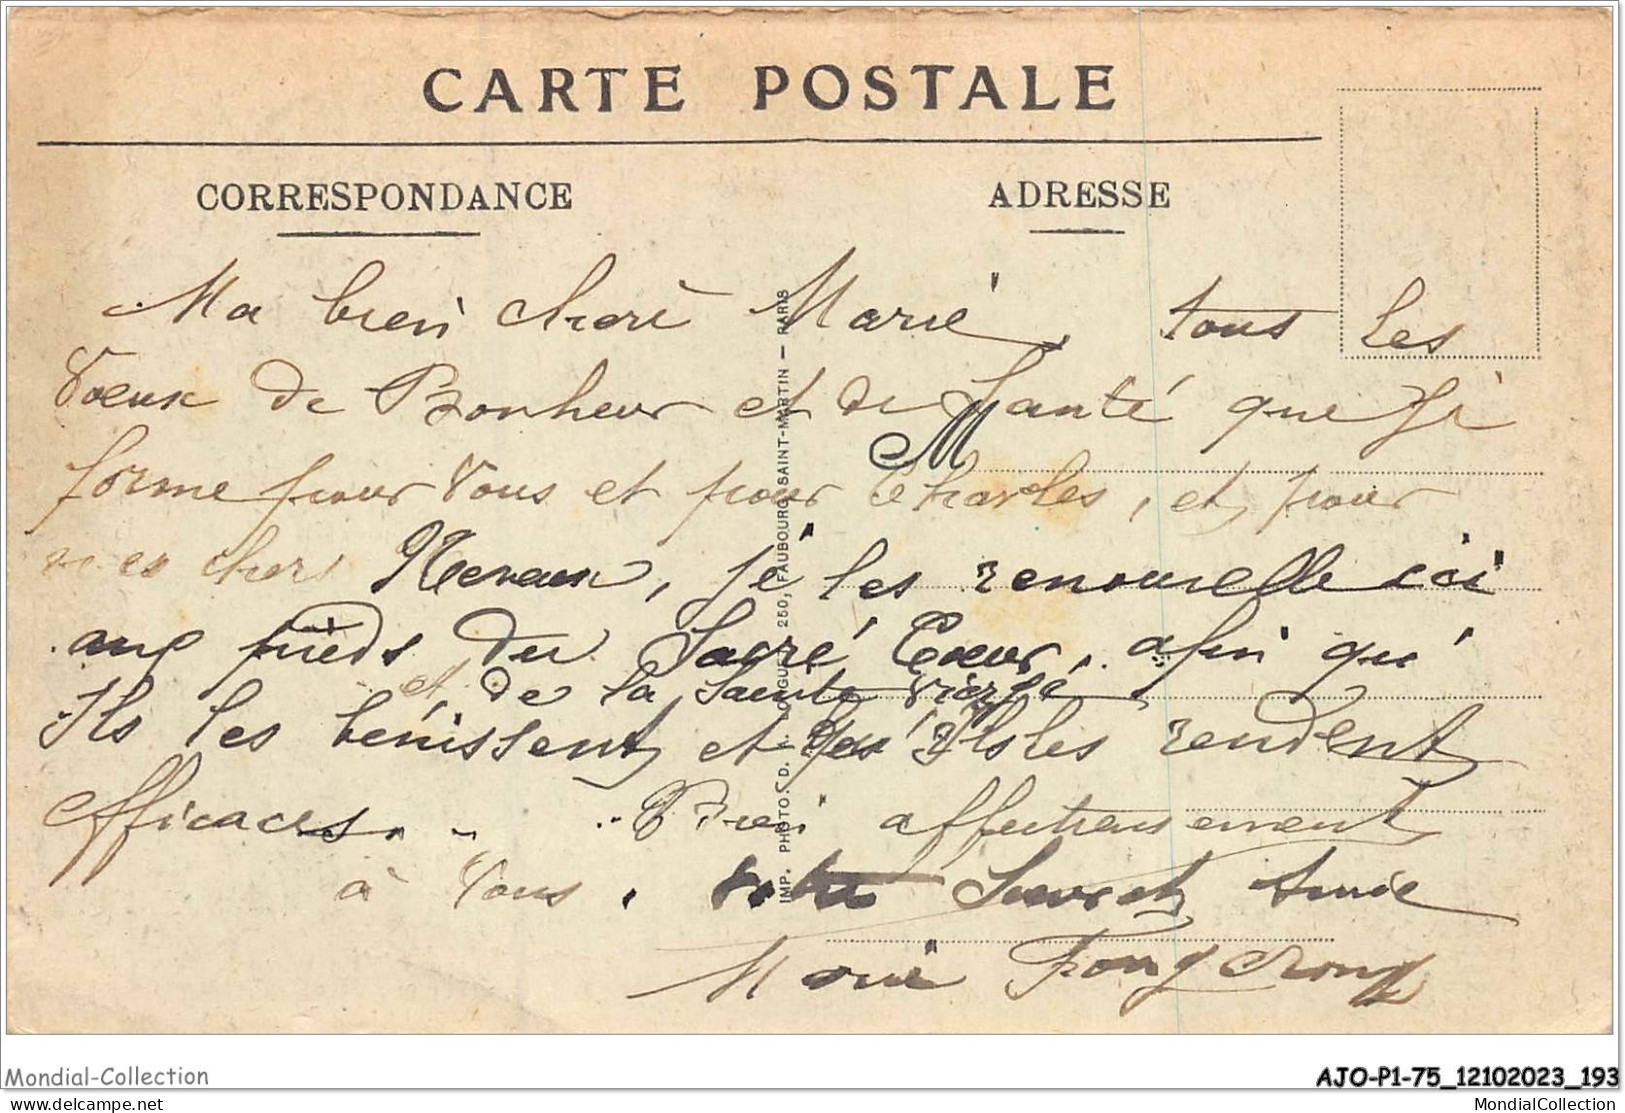 CARTE POSTALE
CORRESPONDANCE
ADRESSE
Ma bien cherè Marie, tous les
Voeux de Bonheur et de Santé que Je
forme pour Vous et pour Charles, et pour
mes chers Neveux, je les renouvelle ici
aux pieds du Sacré Coeur, afin qu'
et de la Sainte Vierge
Ils les bénissent et qu'Ils les rendent
Efficaces. Bien affectueusement
à Vous, votre Amie
Marie
IMP. PHOTO. D. A. LONGUET 250, FAUBOURG SAINT-MARTIN — PARIS
Mondial-Collection
AJO-P1-75_12102023_193
delcampe.net
MondialCollection